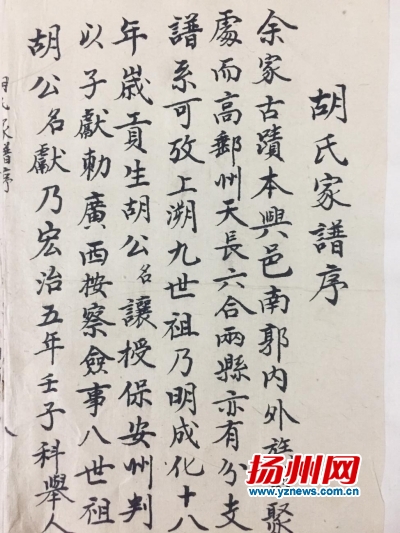 胡氏家譜序
余家古蹟本興邑南郭內外族聚
處而高郵州天長六合兩縣亦有分支
譜系可攷上溯九世祖乃明成化十八
年歲貢生胡公名讓授保安州判
以子獻勅廣西按察僉事八世祖
胡公名獻乃宏治五年壬子科舉人
家譜序
扬州网
www.yznews.com.cn